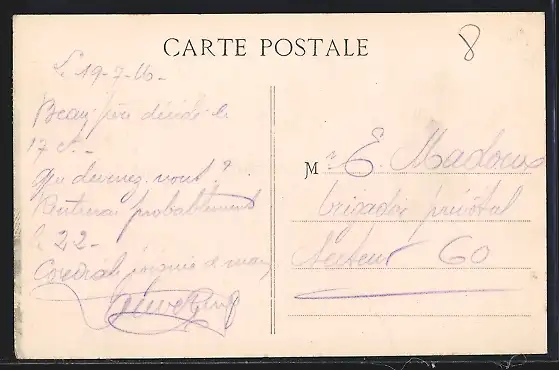 CARTE POSTALE
8
Le 19-7-16-
Beau-père décédé le
17 ct.-
Que devenez-vous?
Rentrerai probablement
le 22-
Cordiale poignée de main
M r E. Madoux
brigadier prévôtal
Secteur 60